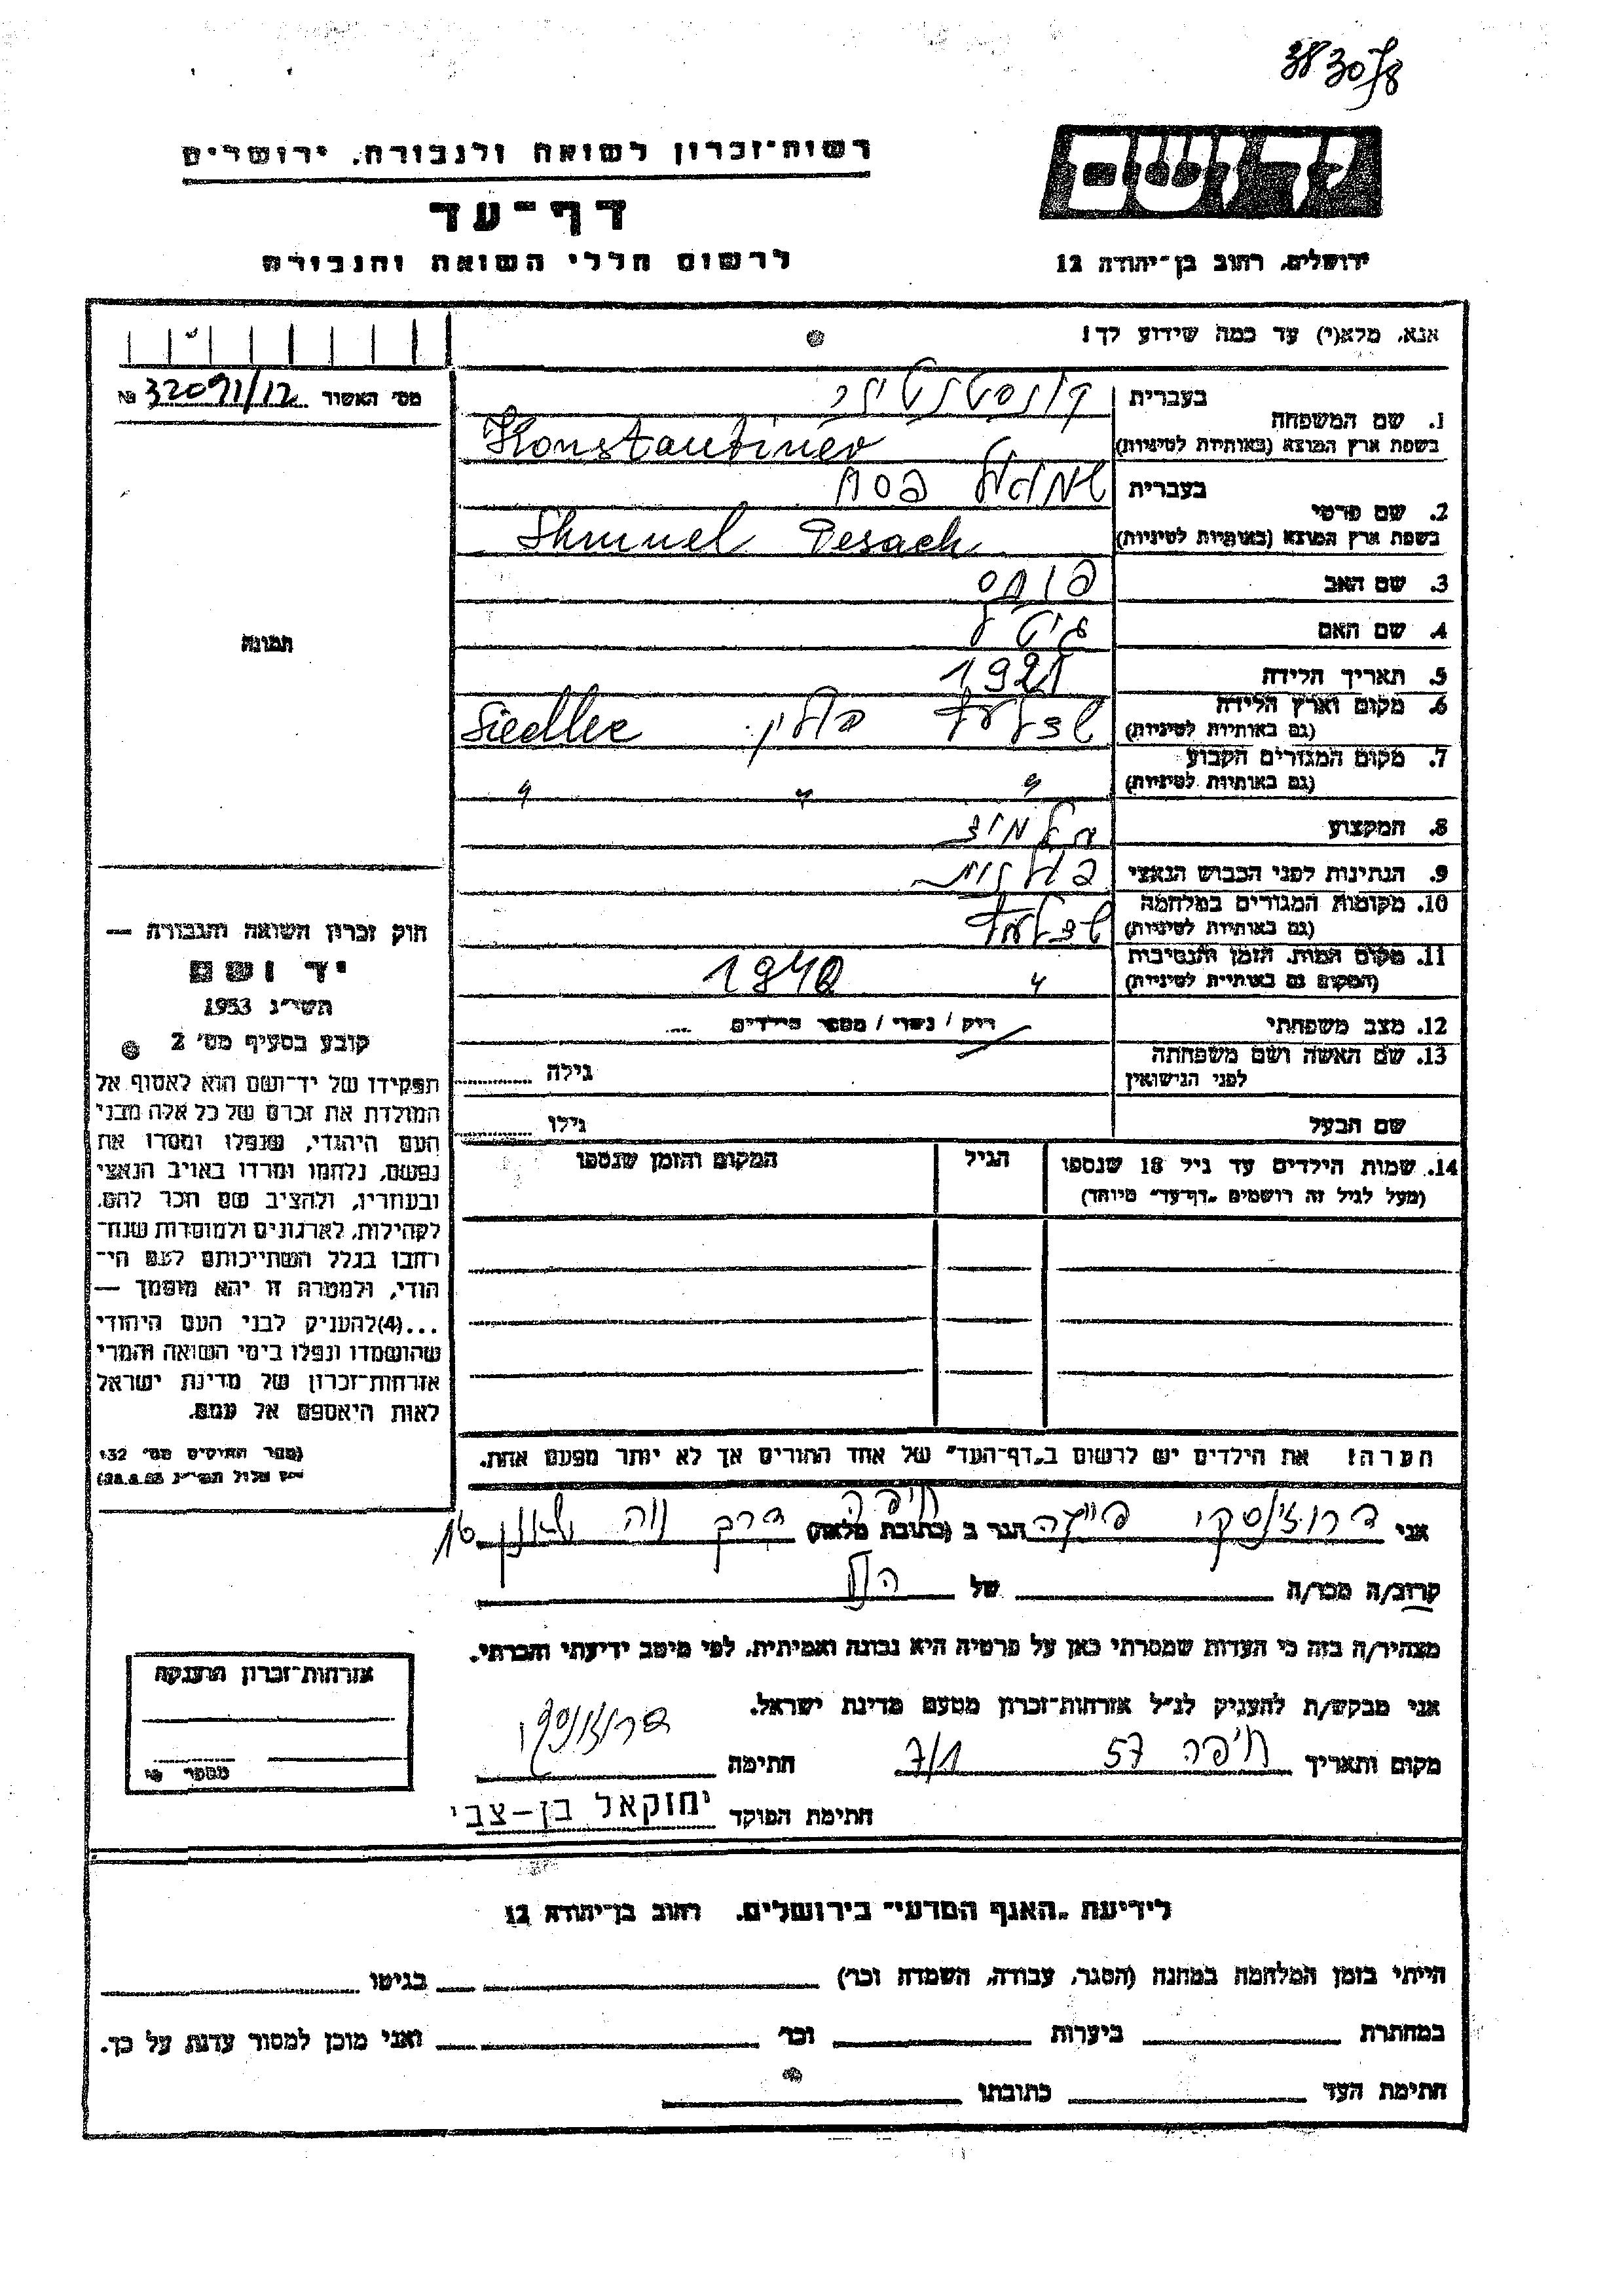 38 30/8
ידושם
רשות־זכרון לשואה ולגבורה, ירושלים
דף־עד
לרשום חללי השואה והגבורה
ירושלים, רחוב בן־יהודה 12
אנא, מלא(י) עד כמה שידוע לך!
מס׳ האשור 32091/12 №
1. שם המשפחה
בעברית
בשפת ארץ המוצא (באותיות לטיניות)
Konstantiner
2. שם פרטי
בעברית שמואל פסח
בשפת ארץ המוצא (באותיות לטיניות)
Shmuel Pesach
3. שם האב פנחס
4. שם האם גיטל
5. תאריך הלידה 1921
6. מקום וארץ הלידה
(גם באותיות לטיניות)
שצלצד פולין Siedlec
7. מקום המגורים הקבוע
(גם באותיות לטיניות)
" " "
8. המקצוע
9. הנתינות לפני הכבוש הנאצי פולנית
10. מקומות המגורים במלחמה
(גם באותיות לטיניות)
11. מקום המות, הזמן והנסיבות
(המקום גם באותיות לטיניות)
" 1942
12. מצב משפחתי רוק / נשוי / מספר הילדים ...
13. שם האשה ושם משפחתה
לפני הנישואין
גילה
שם הבעל גילו
14. שמות הילדים עד גיל 18 שנספו
(מעל לגיל זה רושמים „דף־עד" מיוחד)
הגיל
המקום והזמן שנספו
תמונה
חוק זכרון השואה והגבורה —
יד ושם
תשי״ג 1953
קובע בסעיף מס׳ 2
תפקידו של יד־ושם הוא לאסוף אל
המולדת את זכרם של כל אלה מבני
העם היהודי, שנפלו ומסרו את
נפשם, נלחמו ומרדו באויב הנאצי
ובעוזריו, ולהציב שם וזכר להם,
לקהילות, לארגונים ולמוסדות שנח־
רבו בגלל השתייכותם לעם הי־
הודי, ולמטרה זו יהא מוסמך —
...(4)להעניק לבני העם היהודי
שהושמדו ונפלו בימי השואה והמרי
אזרחות־זכרון של מדינת ישראל
לאות היאספם אל עמם.
(ספר החוקים מס׳ 132
הערה! את הילדים יש לרשום ב„דף־העד" של אחד ההורים אך לא יותר מפעם אחת.
אני דרוזינסקי פייגה הגר ב (כתובת מלאה) חיפה דרך נוה שאנן 16
קרוב/ה מכר/ה של הנ"ל
מצהיר/ה בזה כי העדות שמסרתי כאן על פרטיה היא נכונה ואמיתית, לפי מיטב ידיעתי והכרתי.
אני מבקש/ת להעניק לנ״ל אזרחות־זכרון מטעם מדינת ישראל.
מקום ותאריך חיפה 57 7/1 חתימה
חתימת הפוקד יחזקאל בן-צבי
אזרחות־זכרון הוענקה
מספר
לידיעת „האגף המדעי" בירושלים, רחוב בן־יהודה 12
הייתי בזמן המלחמה במחנה (הסגר, עבודה, השמדה וכו׳) בגיטו
במחתרת ביערות וכו׳ ואני מוכן למסור עדות על כך.
חתימת העד כתובתו